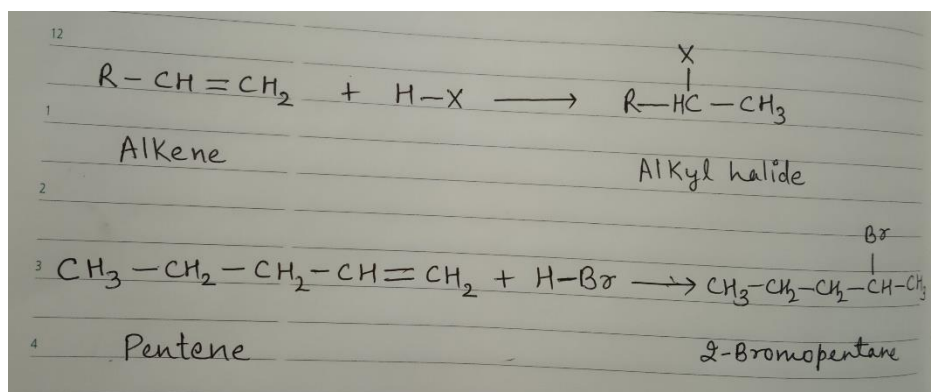 12
X
R - CH = CH₂ + H-X ⟶ R-HC-CH₃
1
Alkene
Alkyl halide
2
Br
3 CH₃-CH₂-CH₂-CH=CH₂ + H-Br ⟶ CH₃-CH₂-CH₂-CH-CH₃
4 Pentene 2-Bromopentane